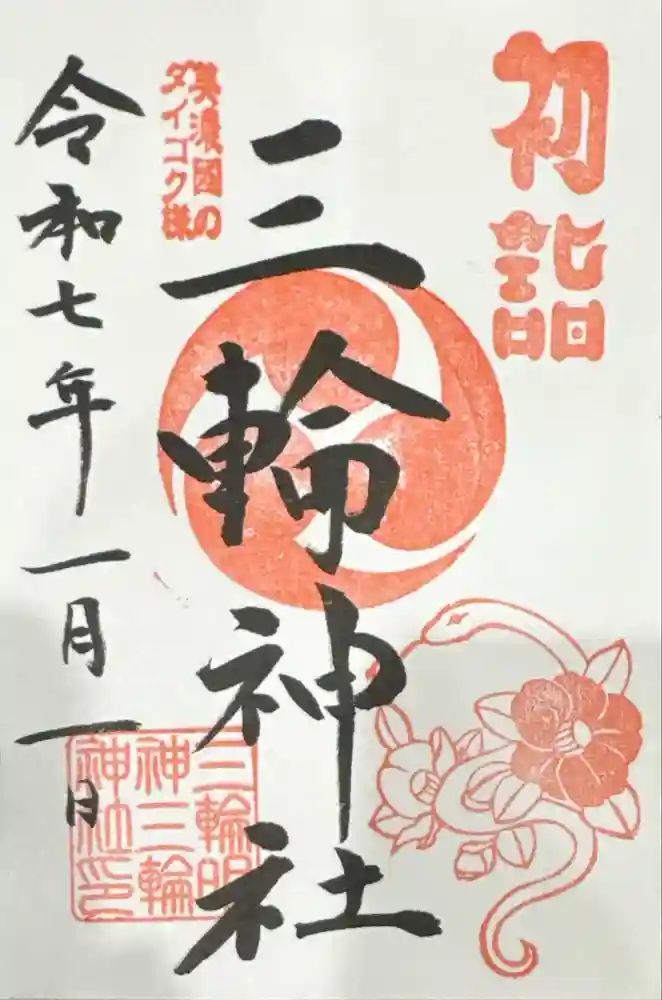 初詣
三輪神社
美濃國の
ダイコク様
令和七年一月一日
三輪明
神三輪
神社印